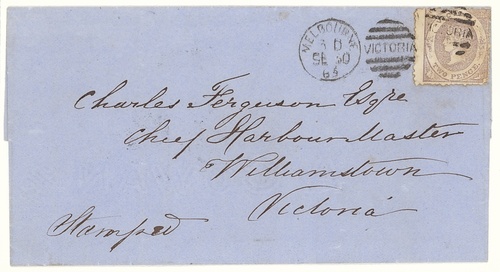 MELBOURNE
3 D
SE 30
64
VICTORIA
VICTORIA
TWO PENCE
Charles Ferguson Esqre
Chief Harbour Master
Williamstown
Victoria
Stamped